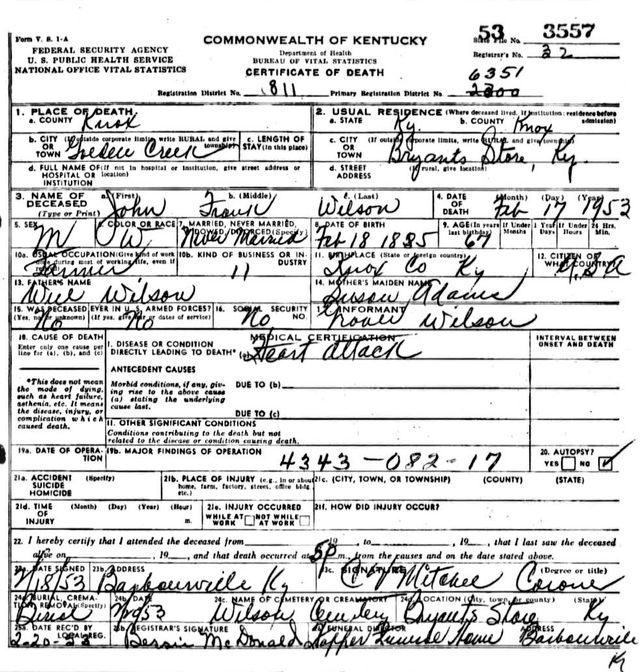 Form V. S. 1-A
FEDERAL SECURITY AGENCY
U. S. PUBLIC HEALTH SERVICE
NATIONAL OFFICE VITAL STATISTICS
COMMONWEALTH OF KENTUCKY
Department of Health
BUREAU OF VITAL STATISTICS
CERTIFICATE OF DEATH
53 3557
State File No.
Registrar's No. 32
6351
Registration District No. 811 Primary Registration District No. 2300
1. PLACE OF DEATH
a. COUNTY Knox
2. USUAL RESIDENCE (Where deceased lived. If institution: residence before admission)
a. STATE Ky. b. COUNTY Knox
b. CITY (If outside corporate limits, write RURAL and give township) OR TOWN Creek
c. LENGTH OF STAY (in this place)
c. CITY (If outside corporate limits, write RURAL and give township) OR TOWN Bryants Store, Ky.
d. FULL NAME OF (If not in hospital or institution, give street address or location) HOSPITAL OR INSTITUTION
d. STREET ADDRESS (If rural, give location)
3. NAME OF DECEASED (Type or Print)
a. (First) John b. (Middle) Frank c. (Last) Wilson
4. DATE OF DEATH (Month) (Day) (Year) Feb 17 1953
5. SEX M
6. COLOR OR RACE W
7. MARRIED, NEVER MARRIED, WIDOWED, DIVORCED (Specify) Never Married
8. DATE OF BIRTH Feb 18 1885
9. AGE (In years last birthday) 67
If Under 1 Year Months Days
If Under 24 Hrs. Hours Min.
10a. USUAL OCCUPATION (Give kind of work done during most of working life, even if retired) Farmer
10b. KIND OF BUSINESS OR INDUSTRY 11
11. BIRTHPLACE (State or foreign country) Knox Co Ky
12. CITIZEN OF WHAT COUNTRY? U.S.A
13. FATHER'S NAME Will Wilson
14. MOTHER'S MAIDEN NAME Susan Adams
15. WAS DECEASED EVER IN U. S. ARMED FORCES? (Yes, no, or unknown) (If yes, give war or dates of service) No No
16. SOCIAL SECURITY NO. No
17. INFORMANT Wilson
18. CAUSE OF DEATH
Enter only one cause per line for (a), (b), and (c)
MEDICAL CERTIFICATION
INTERVAL BETWEEN ONSET AND DEATH
I. DISEASE OR CONDITION DIRECTLY LEADING TO DEATH* (a) Heart attack
*This does not mean the mode of dying, such as heart failure, asthenia, etc. It means the disease, injury, or complication which caused death.
ANTECEDENT CAUSES
Morbid conditions, if any, giving rise to the above cause (a) stating the underlying cause last.
DUE TO (b)
DUE TO (c)
11. OTHER SIGNIFICANT CONDITIONS
Conditions contributing to the death but not related to the disease or condition causing death.
19a. DATE OF OPERATION
19b. MAJOR FINDINGS OF OPERATION
4343-082-17
20. AUTOPSY? YES NO ✓
21a. ACCIDENT SUICIDE HOMICIDE (Specify)
21b. PLACE OF INJURY (e.g., in or about home, farm, factory, street, office bldg. etc.)
21c. (CITY, TOWN, OR TOWNSHIP) (COUNTY) (STATE)
21d. TIME OF INJURY (Month) (Day) (Year) (Hour) m.
21e. INJURY OCCURRED WHILE AT WORK NOT WHILE AT WORK
21f. HOW DID INJURY OCCUR?
22. I hereby certify that I attended the deceased from 19 to , 19 , that I last saw the deceased
alive on , 19 , and that death occurred at 5P m., from the causes and on the date stated above.
23a. DATE SIGNED 2/18/53
23b. ADDRESS Barbourville Ky
23c. SIGNATURE (Degree or title) Mitchell Coroner
24a. BURIAL, CREMATION, REMOVAL (Specify) Burial
24b. DATE
24c. NAME OF CEMETERY OR CREMATORY Wilson Cemetery
24d. LOCATION (City, town, or county) (State) Bryants Store Ky
25a. DATE REC'D BY LOCAL REG. 2-20-53
25b. REGISTRAR'S SIGNATURE McDonald
26. FUNERAL DIRECTOR Hopper Funeral Home
ADDRESS Barbourville
Ky